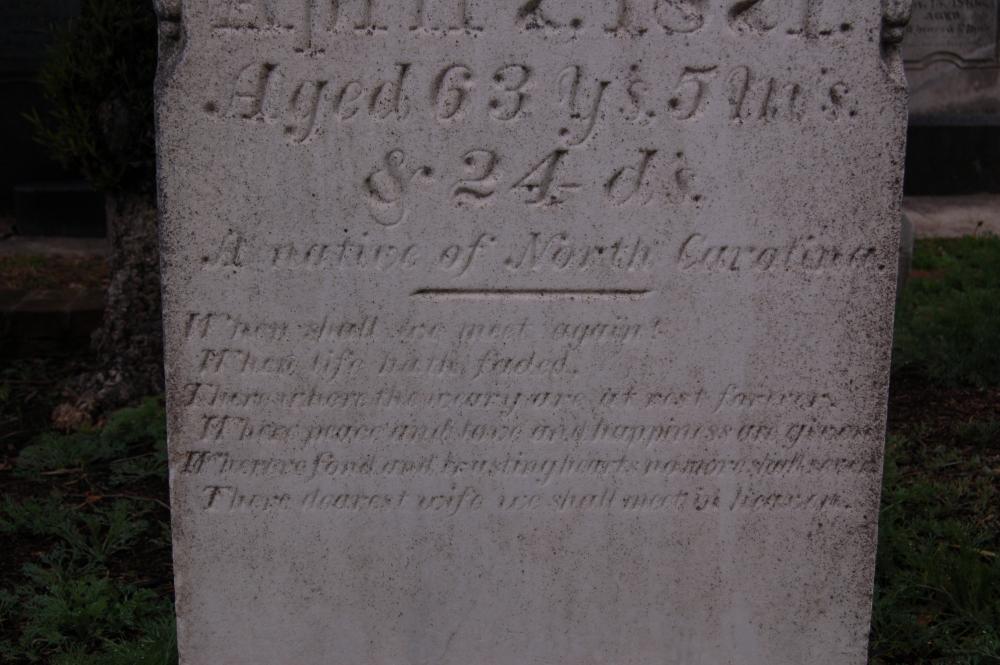 April 2, 1871.
Aged 63 Ys. 5 Ms.
& 24 ds.
A native of North Carolina.
When shall we meet again?
When life hath faded.
There where the weary are at rest forever,
Where peace and love and happiness are given
Where fond and trusting hearts no more shall sever
There dearest wife we shall meet in heaven.
AGED